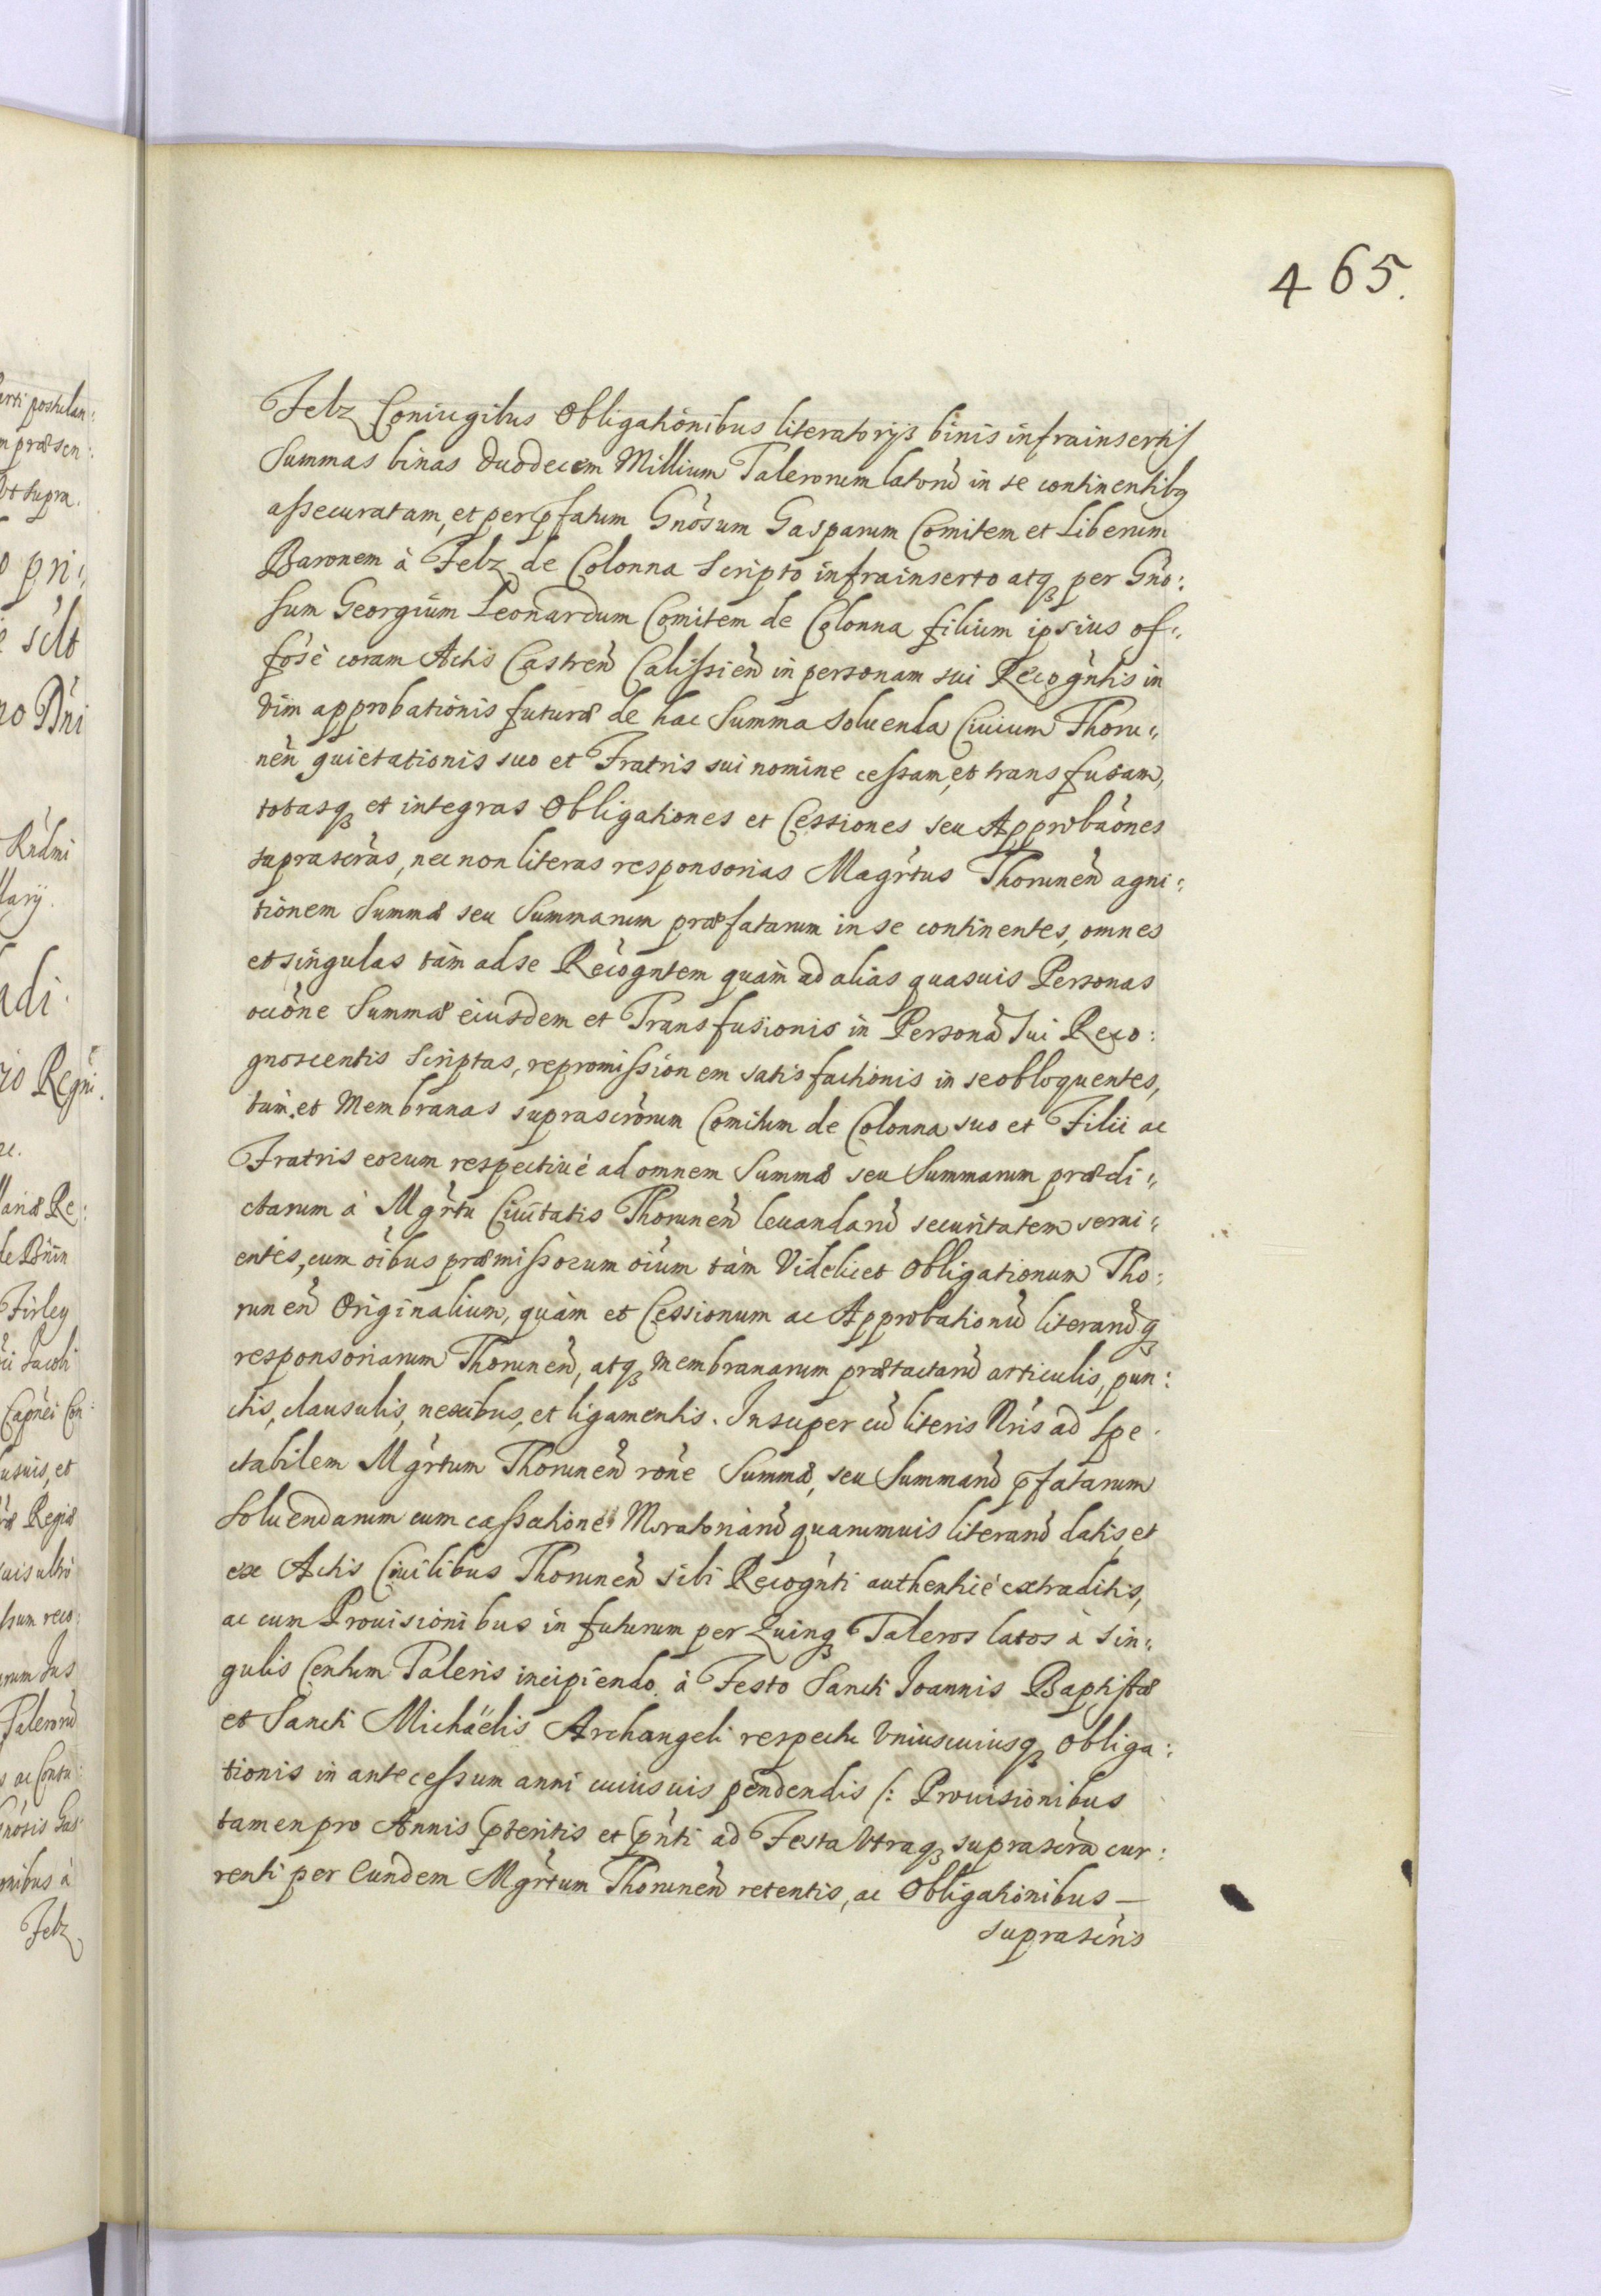 465.
Felz Coniugibus Obligationibus literatorijs binis infrainsertis
Summas binas duodecem Millium Talerorum latorũ in se continentibq
assecuratam, et per pfatum Gnosum Gasparum Comitem et Liberum
Baronem à Felz de Colonna Scripto infrainserto atq per Gno:
sum Georgium Leonardum Comitem de Colonna filium ipsius of:
fose coram Actis Castren Calissien in personam sui Recogntis in
vim approbationis futuræ de hac Summa soluenda Ciuium Thoru:
nen quietationis suo et Fratris sui nomine cessam, et transfusam,
totasq et integras Obligationes et Cessiones seu Approbaones
suprascras, nec non literas responsorias Magrtus Thorunen agni:
tionem Summæ seu Summarum præfatarum in se continentes, omnes
et singulas tàm ad se Recogntem quàm ad alias quasuis Personas
occone Summæ eiusdem et Transfusionis in Personã Sui Reco:
gnoscentis Scriptas, repromissionem satisfactionis in se obloquentes,
tùm et Membranas suprascrorum Comitum de Colonna suo et Filii ac
Fratris eorum respectiuè ad omnem Summæ seu Summarum prædi:
ctarum à Mgrtu Ciuitatis Thorunen leuandarũ securitatem serui:
entes, cum oibus præmissorum oium tàm Videlicet Obligationum Tho:
runen Originalium, quàm et Cessionum ac Approbationũ literarũq
responsoriarum Thorunen, atq membranarum prætactarũ articulis, pun:
ctis, clausulis, nexibus, et ligamentis. Insuper cũ literis Nris ad Spe:
ctabilem Mgrtum Thorunen rone Summæ, seu Summarũ pfatarum
soluendarum cum cassatione Moratoriarũ quarumuis literarũ datis, et
ex Actis Ciuilibus Thorunen sibi Recognti authenticè extraditis,
ac cum Prouisionibus in futurum per Quinq Taleros latos à sin:
gulis Centum Taleris incipiendo à Festo Sancti Joannis Baptistæ
et Sancti Michaëlis Archangeli respectu Vniuscuiusq Obliga:
tionis in antecessum anni cuiusuis pendendis (: Prouisionibus
tamen pro Annis pteritis et pnti ad Festa Vtraq suprascra cur:
renti per Eundem Mgrtum Thorunen retentis, ac Obligationibus —
suprascris